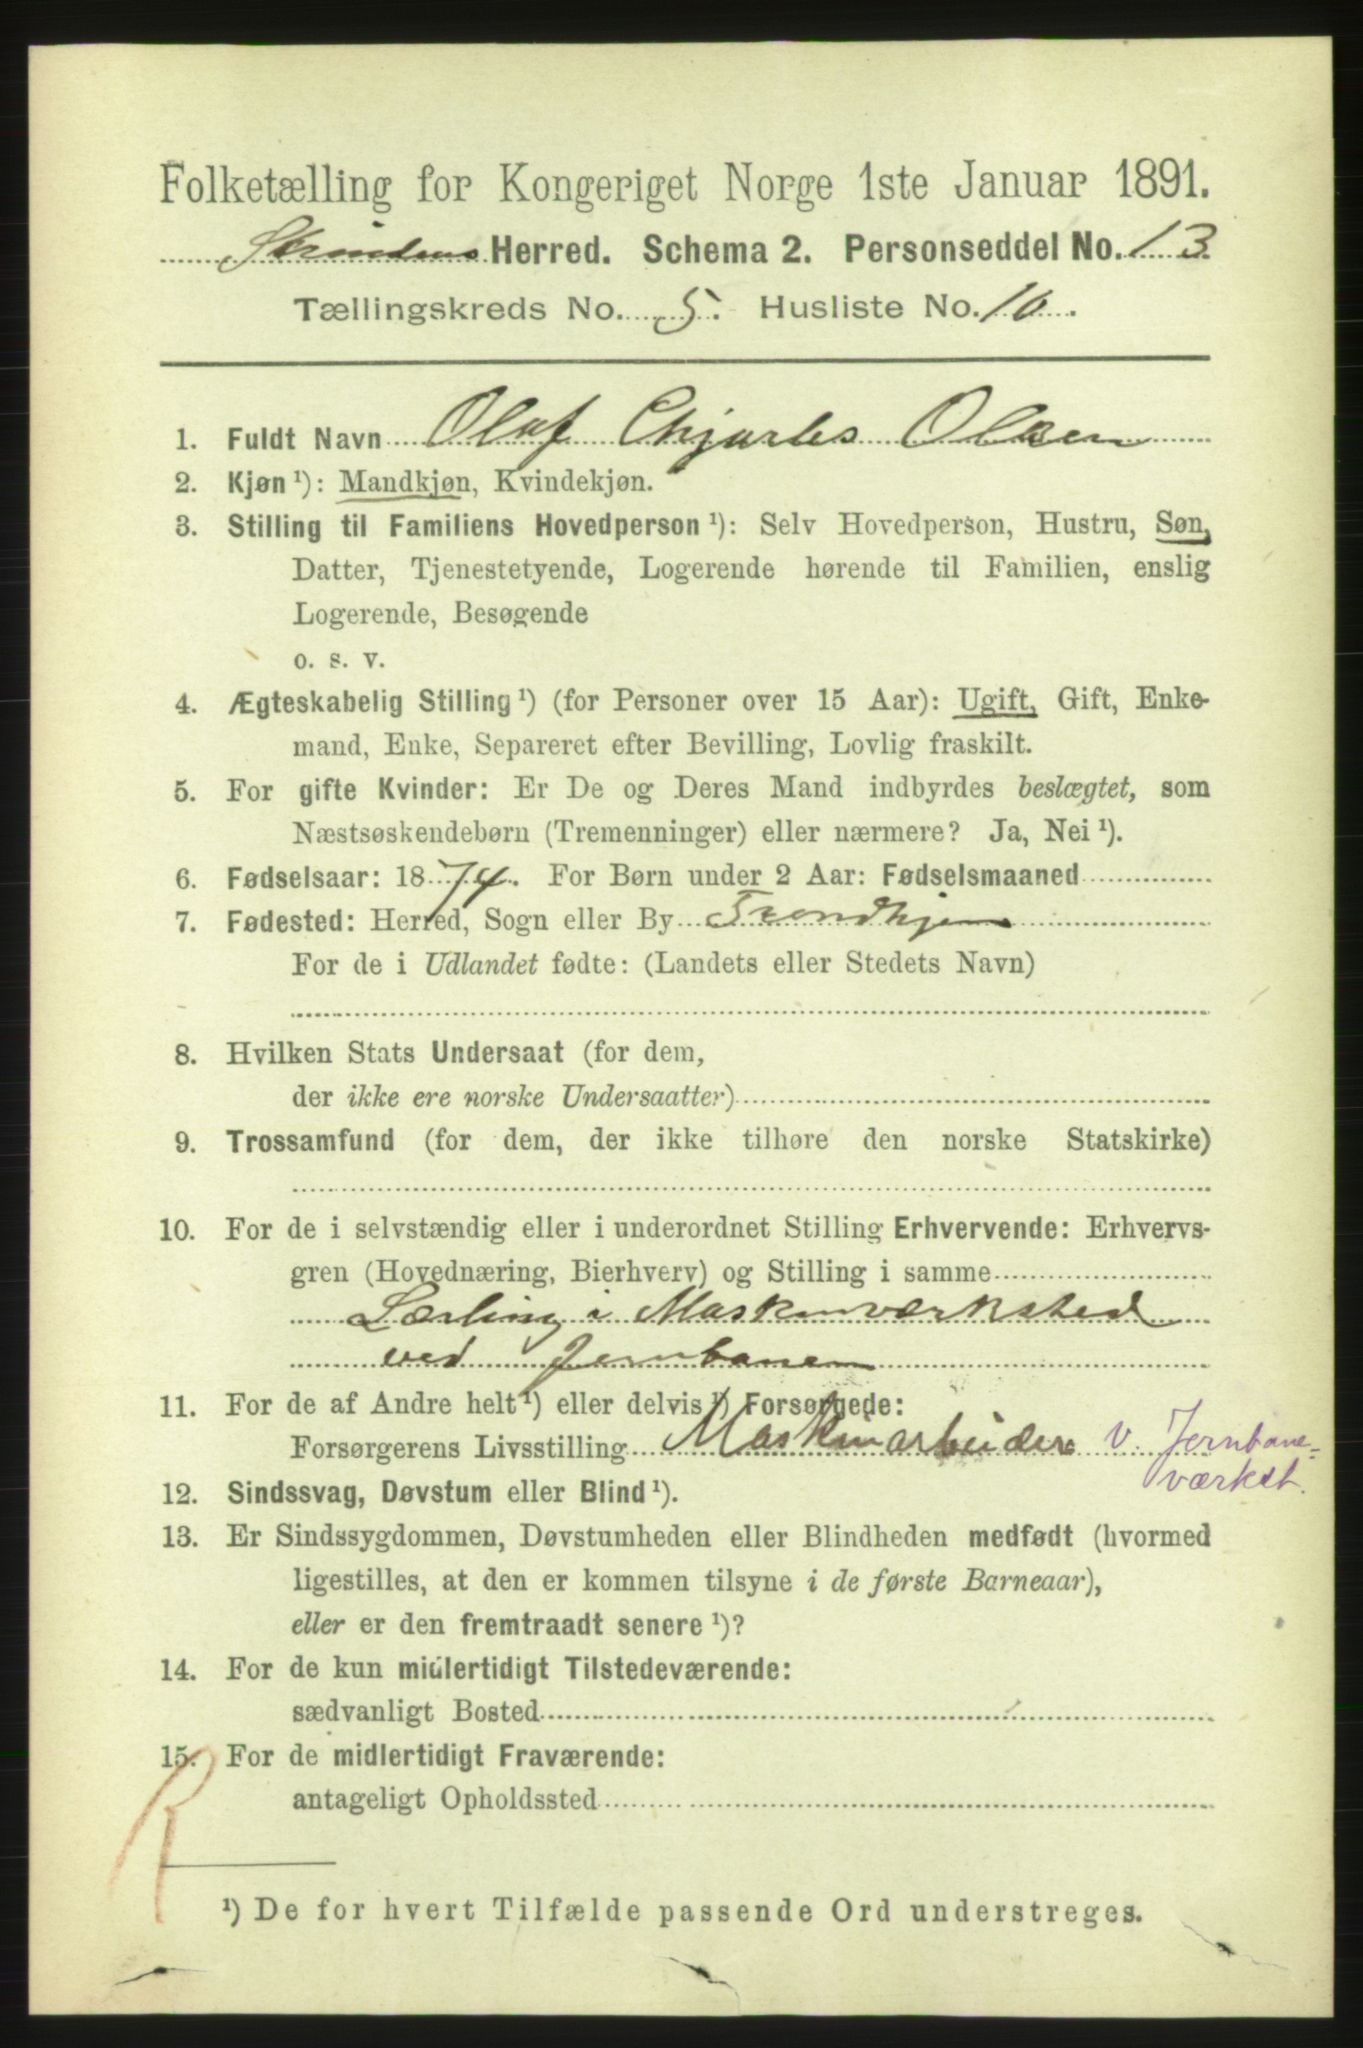 Folketælling for Kongeriget Norge 1ste Januar 1891.
Strindens Herred. Schema 2. Personseddel No. 13
Tællingskreds No. 5. Husliste No. 16.
1. Fuldt Navn Olaf Chjarles Olsen
2. Kjøn ¹): Mandkjøn, Kvindekjøn.
3. Stilling til Familiens Hovedperson ¹): Selv Hovedperson, Hustru, Søn,
Datter, Tjenestetyende, Logerende hørende til Familien, enslig
Logerende, Besøgende
o. s. v.
4. Ægteskabelig Stilling ¹) (for Personer over 15 Aar): Ugift, Gift, Enke-
mand, Enke, Separeret efter Bevilling, Lovlig fraskilt.
5. For gifte Kvinder: Er De og Deres Mand indbyrdes beslægtet, som
Næstsøskendebørn (Tremenninger) eller nærmere? Ja, Nei ¹).
6. Fødselsaar: 1874. For Børn under 2 Aar: Fødselsmaaned
7. Fødested: Herred, Sogn eller By Trondhjem
For de i Udlandet fødte: (Landets eller Stedets Navn)
8. Hvilken Stats Undersaat (for dem,
der ikke ere norske Undersaatter)
9. Trossamfund (for dem, der ikke tilhøre den norske Statskirke)
10. For de i selvstændig eller i underordnet Stilling Erhvervende: Erhvervs-
gren (Hovednæring, Bierhverv) og Stilling i samme
Lærling i Maskinværksted
ved Jernbanen
11. For de af Andre helt ¹) eller delvis ¹) Forsørgede:
Forsørgerens Livsstilling Maskinarbeider v. Jernbane-
værkst.
12. Sindssvag, Døvstum eller Blind ¹).
13. Er Sindssygdommen, Døvstumheden eller Blindheden medfødt (hvormed
ligestilles, at den er kommen tilsyne i de første Barneaar),
eller er den fremtraadt senere ¹)?
14. For de kun midlertidigt Tilstedeværende:
sædvanligt Bosted
15. For de midlertidigt Fraværende:
antageligt Opholdssted
R
¹) De for hvert Tilfælde passende Ord understreges.